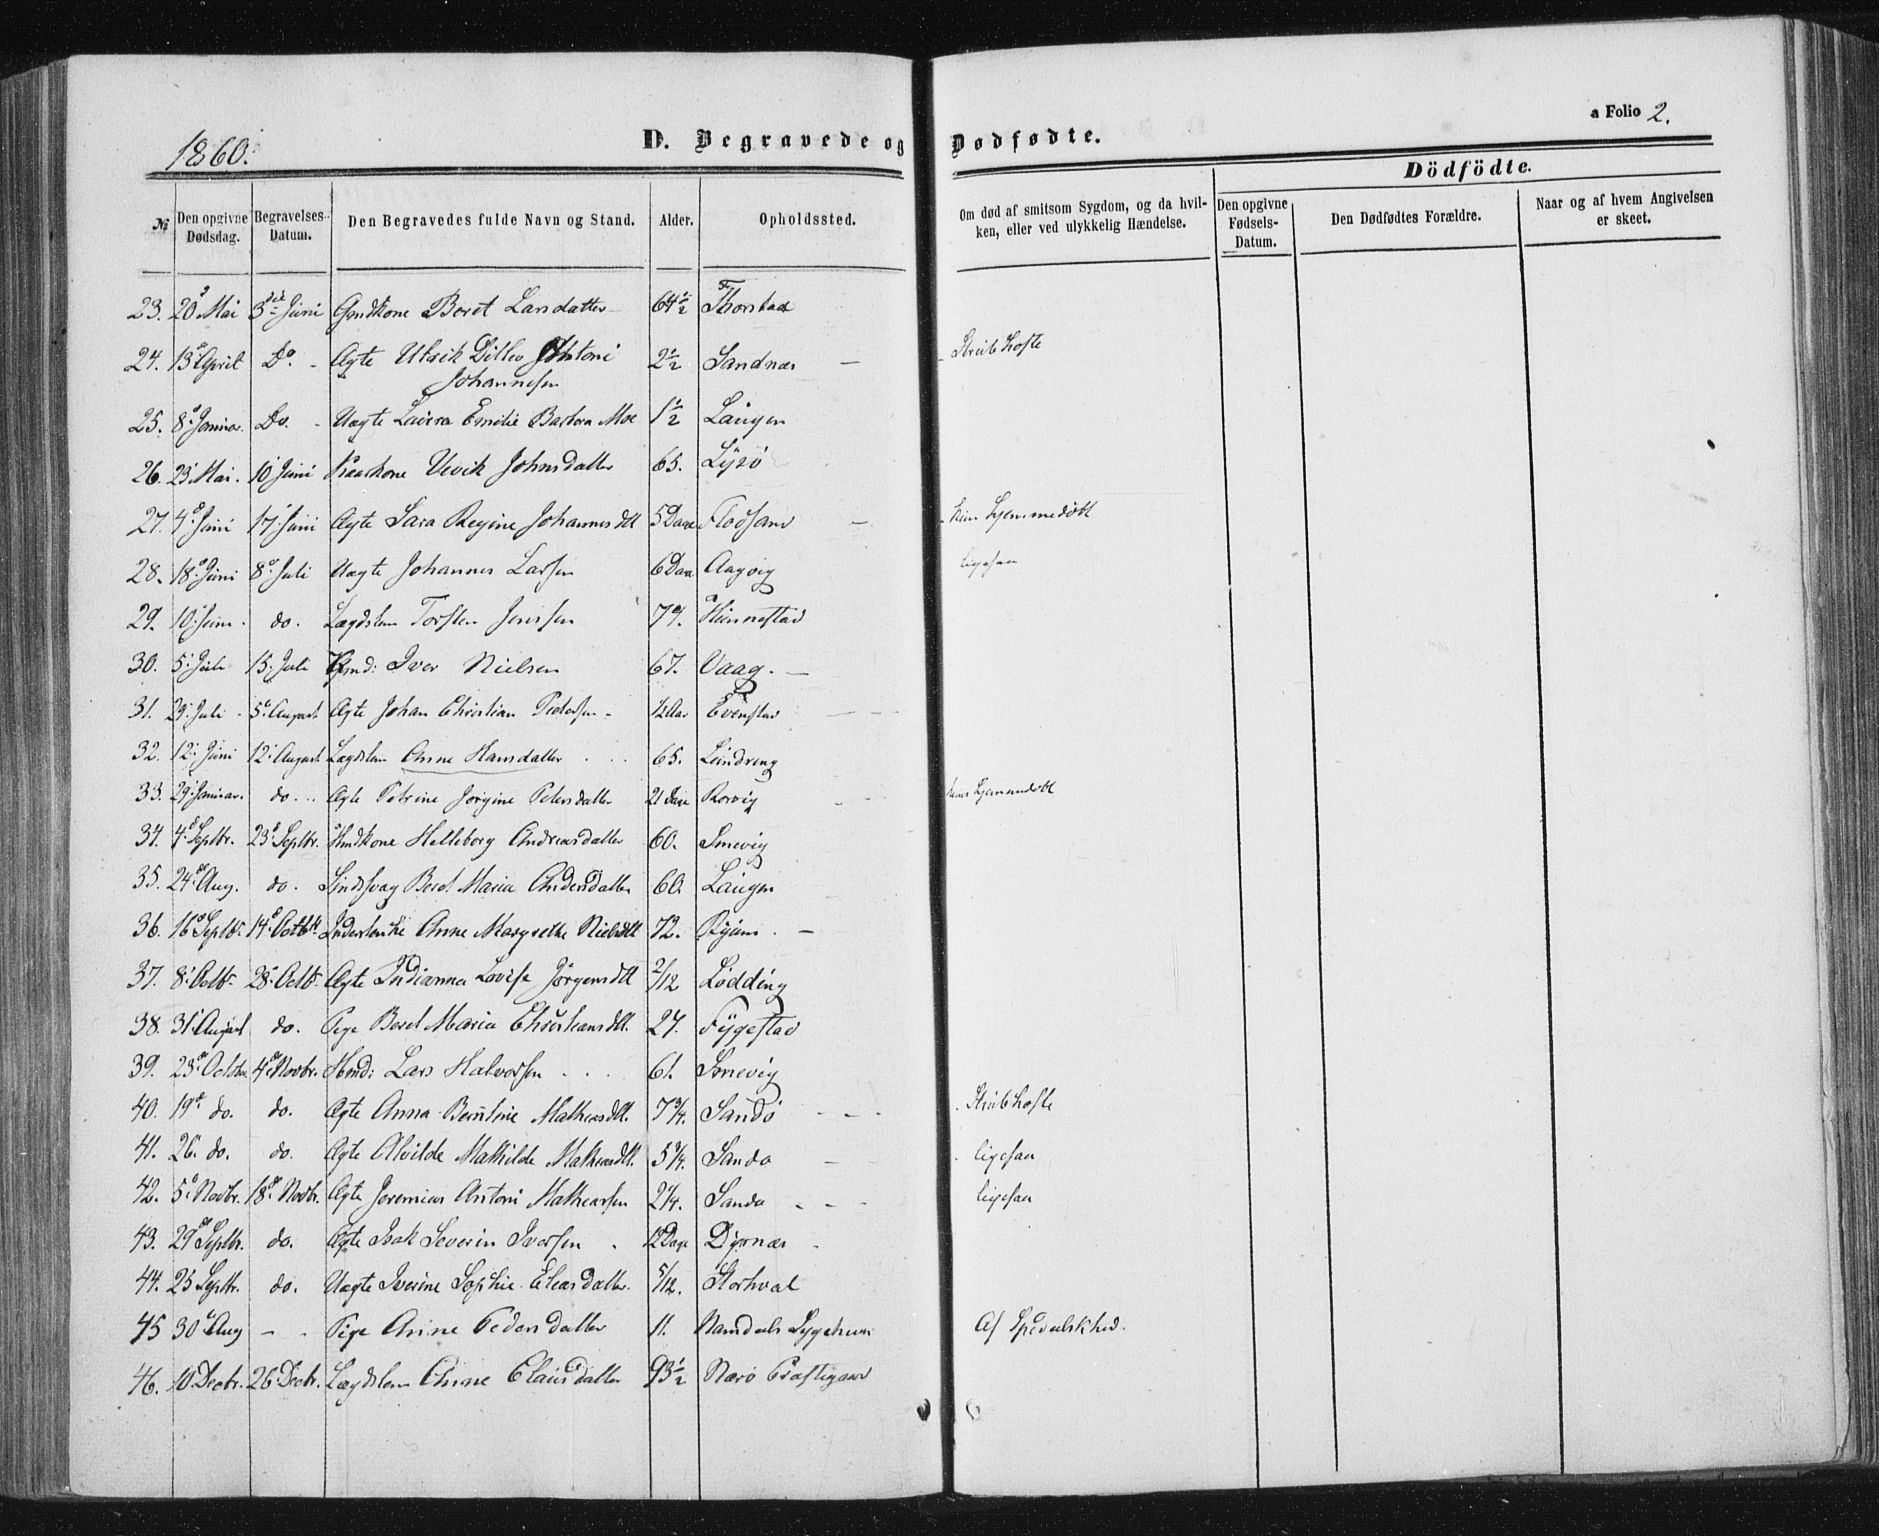 1860.
D. Begravede og Dødfødte.
a Folio 2.
Dödfödte.
№ Den opgivne Dødsdag. Begravelses-Datum. Den Begravedes fulde Navn og Stand. Alder. Opholdssted. Om død af smitsom Sygdom, og da hvilken, eller ved ulykkelig Hændelse. Den opgivne Fødsels-Datum. Den Dødfødtes Forældre. Naar og af hvem Angivelsen er skeet.
23. 20 Mai 3die Juni Gmdkone Beret Larsdatter 64½ Thorstad
24. 13 April Do. Ægte Ulrik Ditlev Antoni 2½ Sandnæs Strubehoste
Johannesen
25. 8 Januar Do. Uægte Laura Emilie Barbora Moe 1½ Laugen
26. 23 Mai. 10 Juni Kaarkone Uevik Johnsdatter 65. Lysø
27. 4 Juni 17 Juni Ægte Sara Regine Johannesdtt 5 Dage Flosand kun hjemmedöbt
28. 18 Juni 8 Juli Uægte Johannes Larsen 6 Dage Aagvig ligesaa
29. 10 Juni do. Lægdslem Torsten Jensen 79. Finnestad
30. 5 Juli 15. Juli Gmd: Iver Nielsen 67. Vaag.
31. 23 Juli 5 August Ægte Johan Christian Pedersen ½ Aar Evenstad
32. 12 Juni 12 August Lægdslem Anne Hansdatter 65. Lundring
33. 29 Januar. do. Ægte Petrine Jørgine Petersdatter 21 Dage Rorvig kun hjemmedöbt
34. 4 Septbr. 23 Septbr. Hmdkone Helleborg Andreasdatter 60. Smevig
35. 24 Aug. do. Sindssvag Beret Maria Andersdatter 60. Laugen
36. 16 Septbr 14 Octbr Inderstenke Anne Margrethe Nielsdtt 72. Ryum
37. 8 Octbr 28 Octbr Ægte Indianna Lovise Jørgensdtt 2/12 Lødding
38. 31 August do. Pige Beret Maria Christiansdtt. 27. Fygestad
39. 23 October 4 Novbr. Hmd: Lars Halvorsen 61. Smevig
40. 19 do. do. Ægte Anna Berntine Matheasdtt. 7¾. Sandø Strubehoste
41. 26. do. do. Ægte Alvilde Mathilde Matheasdtt. 5¼. Sandø ligesaa
42. 5 Novbr. 18 Novbr. Ægte Jeremias Antoni Matheasen 2¼. Sandø ligesaa
43. 29 Septbr. do. Ægte Isak Severin Iversen 12 Dage Dyrnæs
44. 25 Septbr. do. Uægte Iverine Sophie Eleasdatter. 5/12. Storhval
45 30 Aug - - Pige Anne Pedersdatter 11. Namdals Sygehuus Af Spedalskhed.
46. 10 Decbr. 26 Decbr. Lægdslem Anne Clausdatter 93½ Nærø Præstegaard